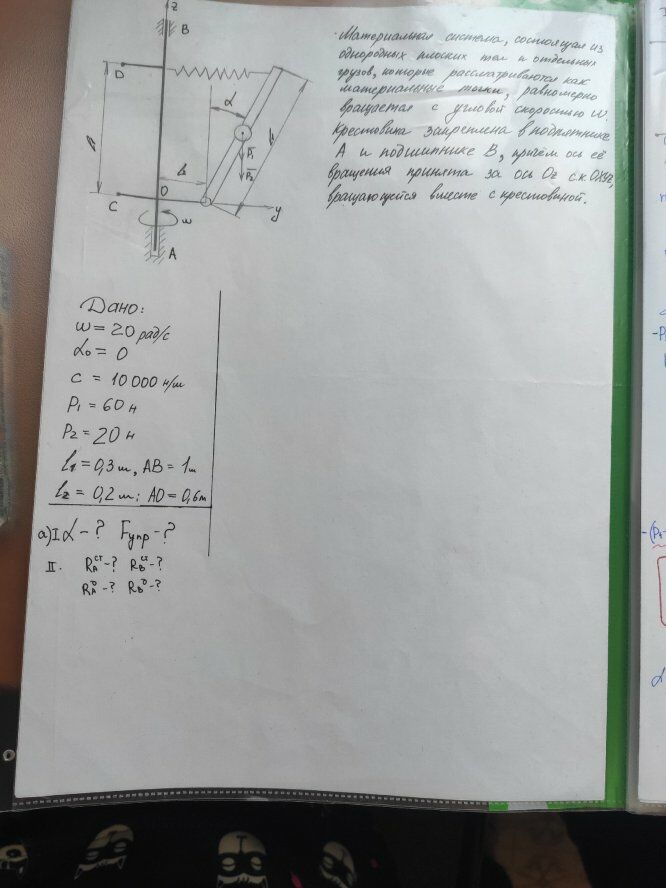 Материальная система, состоящая из
однородных плоских тел и отдельных
грузов, которые рассматриваются как
материальные точки, равномерно
вращается с угловой скоростью w.
Крестовина закреплена в подпятнике
A и подшипнике B, причём ось её
вращения принята за ось Oz с.к OXYZ,
вращающейся вместе с крестовиной.
z
B
D
α
h
P1
P2
O
C
w
y
A
Дано:
w = 20 рад/с
α0 = 0
c = 10 000 н/м
P1 = 60 н
P2 = 20 н
l1 = 0,3 м, AB = 1м
l2 = 0,2 м; AO = 0,6м
a) I α - ? Fупр - ?
II. RAст - ? RBст - ?
RAD - ? RBD - ?